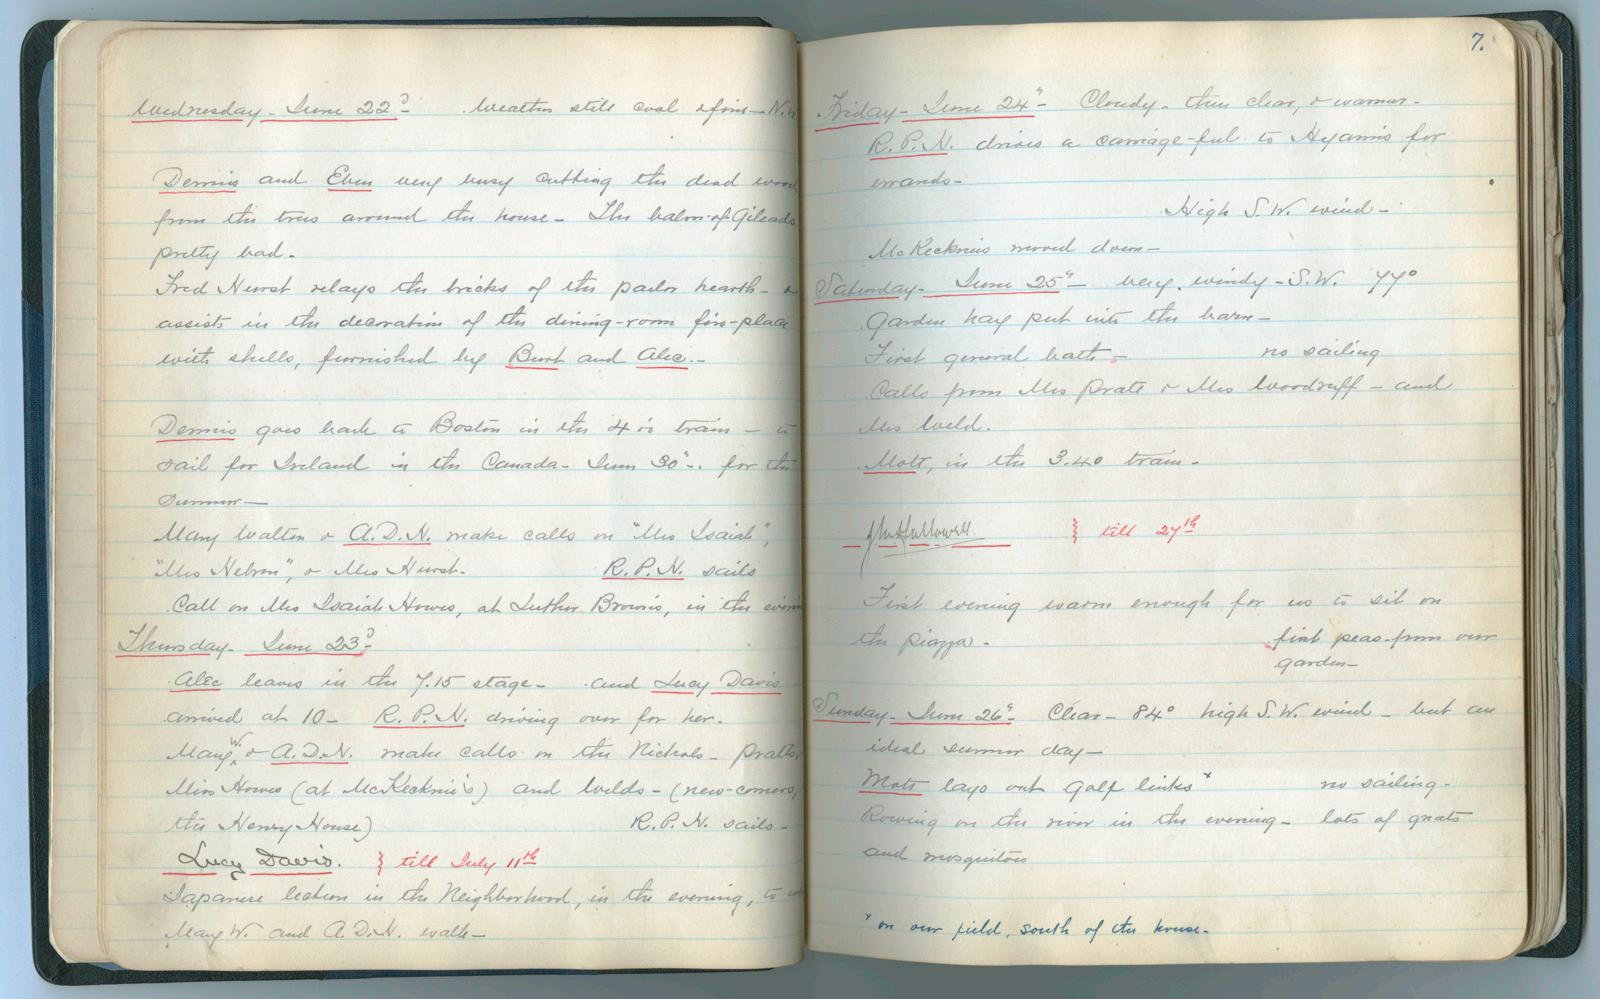 Wednesday - June 22d Weather still cool & fine - N.
Dennis and Eben very busy cutting the dead wood
from the trees around the house - The balm-of-Gileads
pretty bad -
Fred Hurst relays the bricks of the parlor hearth - &
assists in the decoration of the dining-room fire-place
with shells, furnished by Burt and Alec. -
Dennis goes back to Boston in the train - to
sail for Ireland in the Canada - June 30" - for the
summer -
Mary Walton & A.D.N. make calls on "Mrs Isaiah",
"Mrs Nelson", & Mrs Hurst - R.P.N. sails
Call on Mrs Isaiah Howes, at Luther Brown's, in the
Thursday - June 23d -
Alec leaves in the 7.15 stage - and Lucy Davis
arrived at 10 - R.P.N. driving over for her -
Mary W. & A.D.N. make calls on the Nichols - Pratts,
Miss Howes (at McKecknie's) and Welds - (new-comers,
the Henry House) R.P.N. sails -
Lucy Davis. } till July 11th
Japanese lecture in the Neighborhood, in the evening, to
Mary W. and A.D.N. walk -
7.
Friday - June 24" - Cloudy - then clear, & warmer -
R.P.N. drives a carriage-ful to Hyannis for
errands -
High S.W. wind -
McKecknies moved down -
Saturday - June 25" - very windy - S.W. 77°
Garden hay put into the barn -
First general bath - no sailing
Calls from Mrs Pratt & Mrs Woodruff - and
Mrs Weld.
Mott, in the 3.40 train -
} till 27th
First evening warm enough for us to sit on
the piazza - first peas from our
garden -
Sunday - June 26" - Clear - 84° high S.W. wind - but an
ideal summer day -
Mott lays out Golf links x no sailing -
Rowing on the river in the evening - lots of gnats
and mosquitoes
x on our field, south of the house -